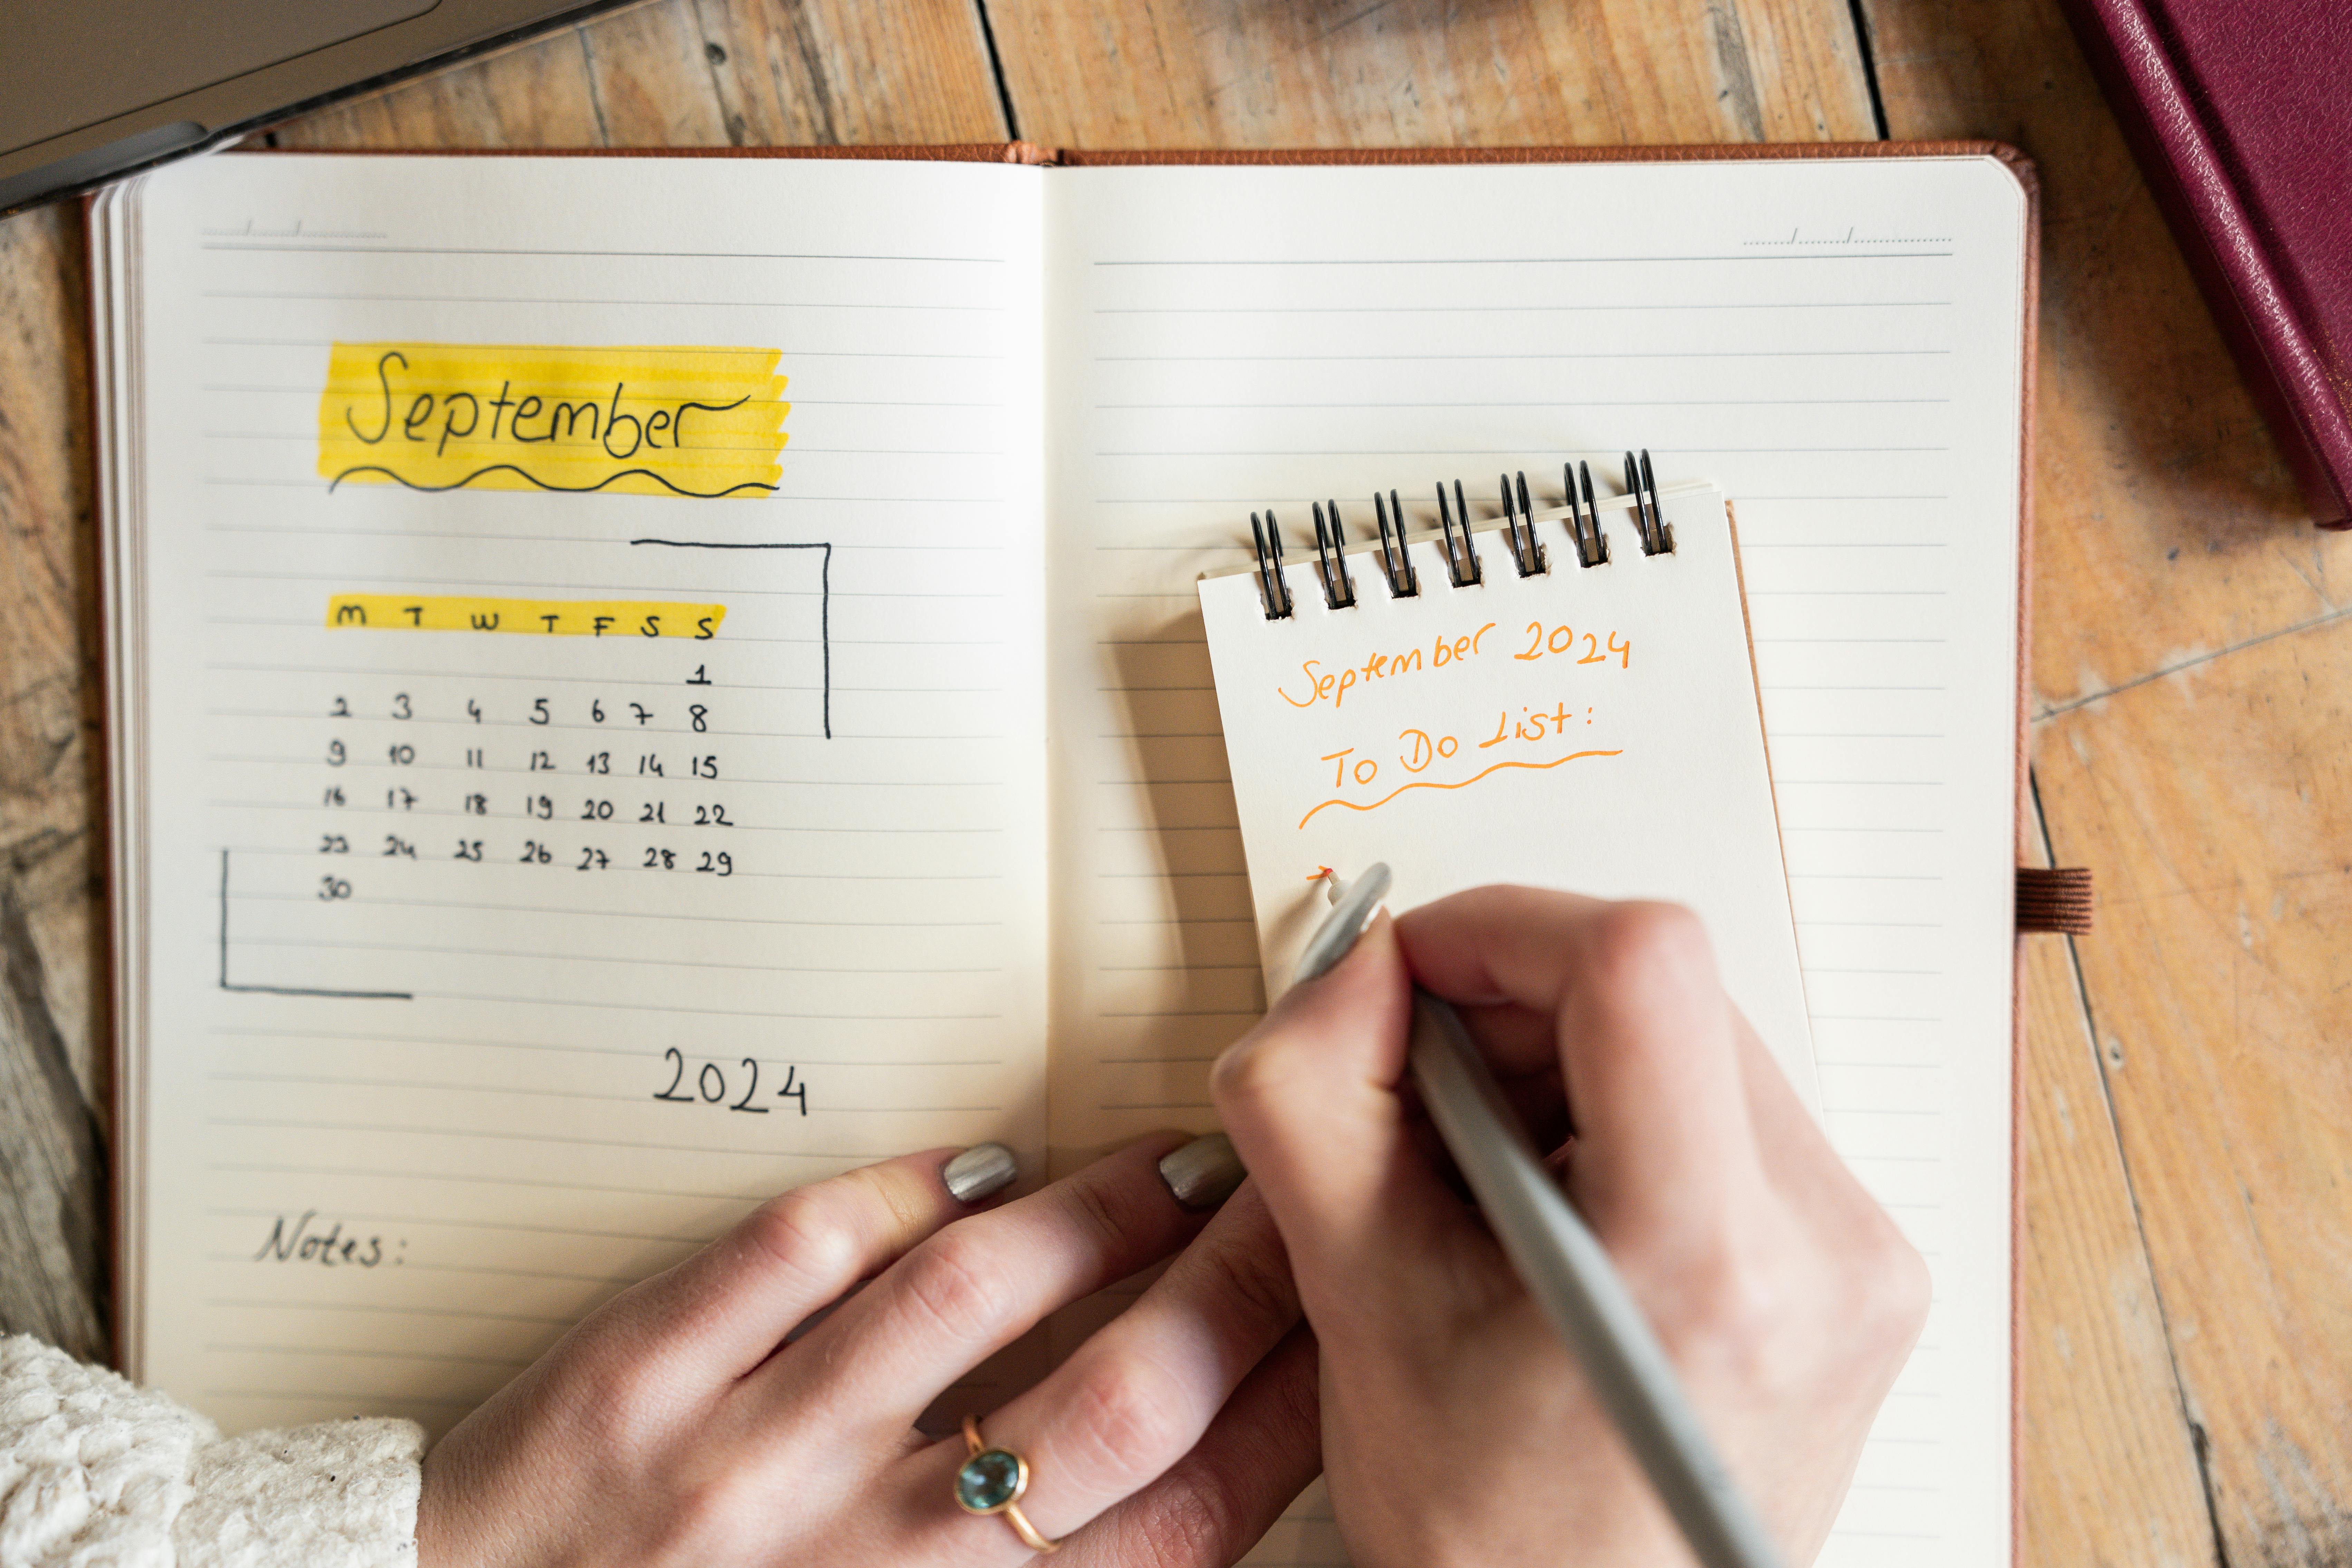 September
M T W T F S S
1
2 3 4 5 6 7 8
9 10 11 12 13 14 15
16 17 18 19 20 21 22
23 24 25 26 27 28 29
30
2024
Notes:
September 2024
To Do List: